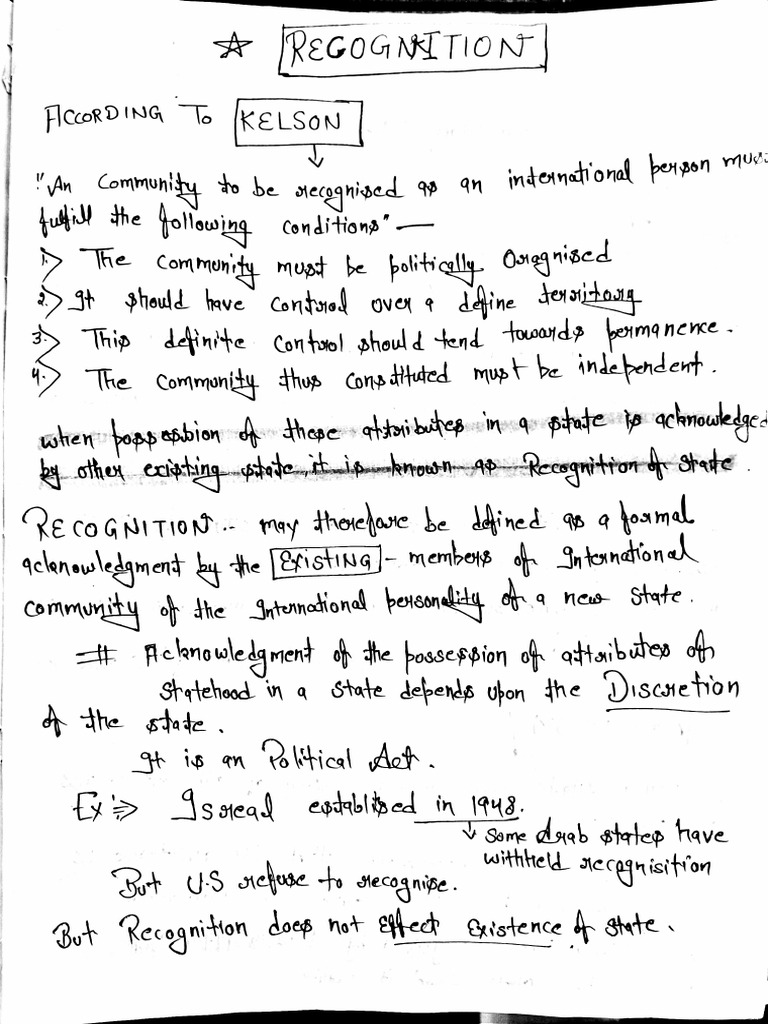 ☆ RECOGNITION
ACCORDING TO KELSON
"An Community to be recognised as an international person mus
fulfill the following conditions" —
1.> The community must be politically Oragnised
2.> It should have control over a define territory
3.> This definite control should tend towards permanence.
4.> The Community thus constituted must be independent.
when possession of these attributes in a state is acknowledged
by other existing state, it is known as Recognition of State.
RECOGNITION :- may therefore be defined as a formal
acknowledgment by the EXISTING - members of International
community of the International personality of a new State.
=# Acknowledgment of the possession of attributes of
statehood in a state depends upon the Discretion
of the state.
It is an Political Act.
Ex:=> Isreal establised in 1948.
↓ Some Arab states have
withheld recognisition
But U.S refuse to recognise.
But Recognition does not Effect Existence of State.